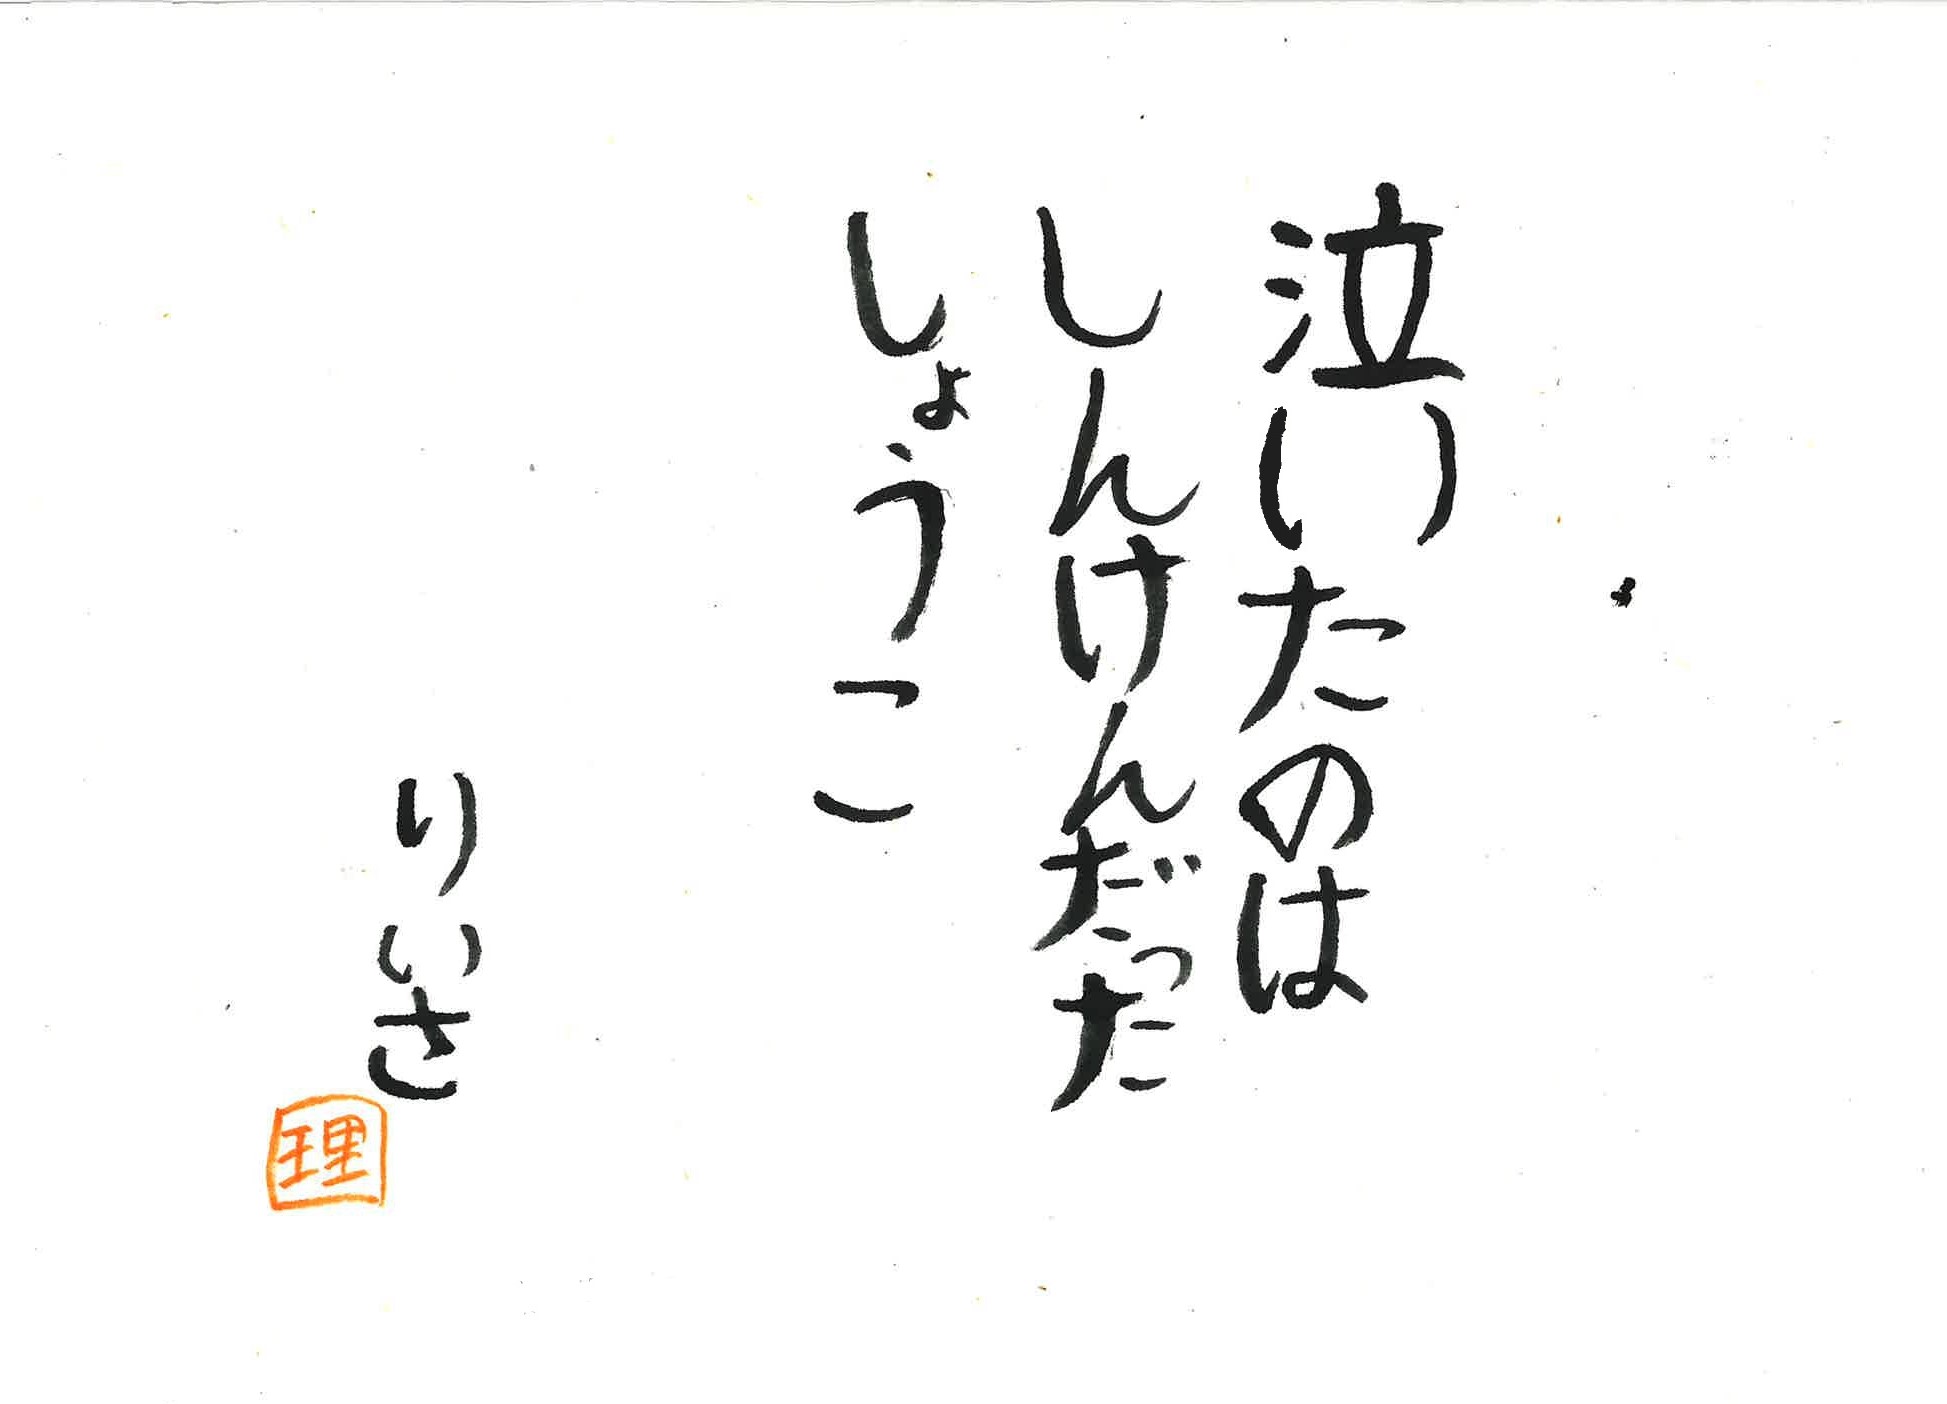 泣いたのは
しんけんだった
しょうこ
りいさ
理